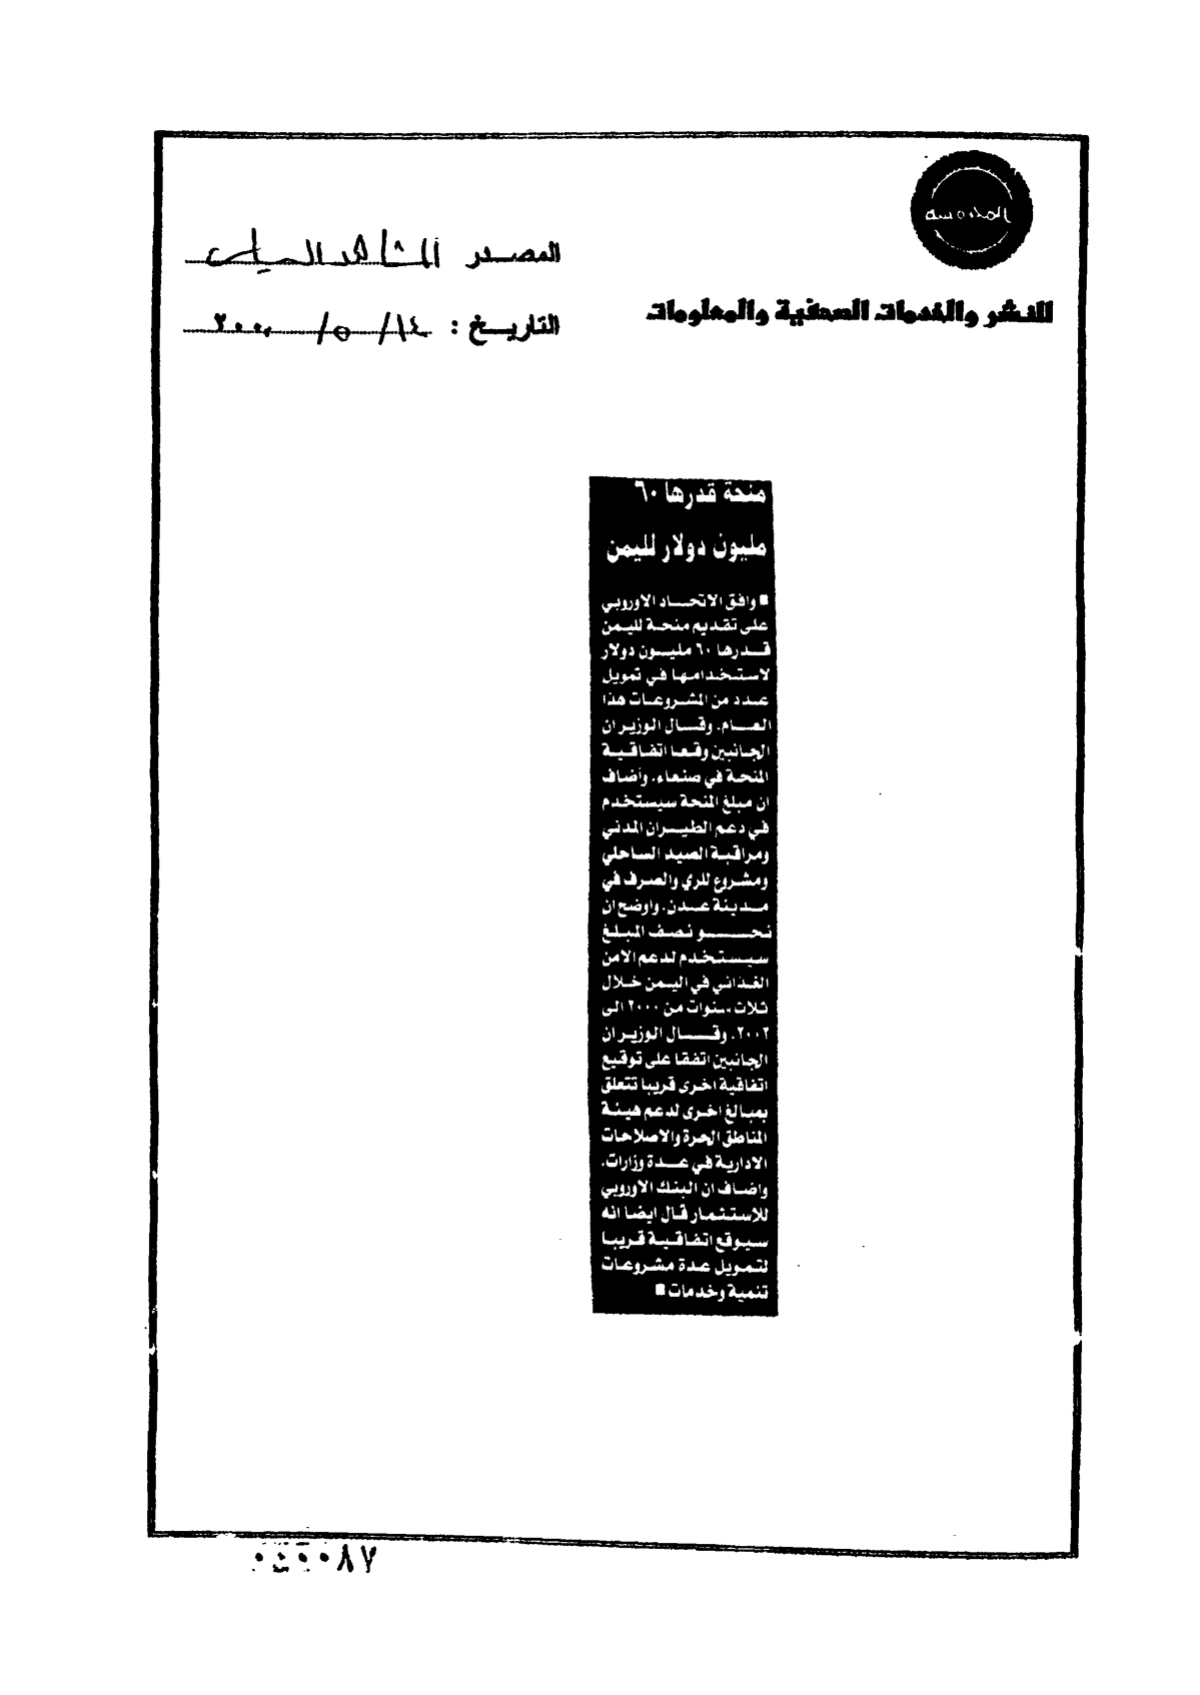 المحروسة
للنشر والخدمات الصحفية والمعلومات
المصدر المشاهد السياسى
التاريخ : ١٤/ ٥/ ٢٠٠٠
منحة قدرها ٦٠
مليون دولار لليمن
■ وافق الاتحاد الاوروبي
على تقديم منحة لليمن
قدرها ٦٠ مليون دولار
لاستخدامها في تمويل
عدد من المشروعات هذا
العام. وقال الوزير ان
الجانبين وقعا اتفاقية
المنحة في صنعاء. وأضاف
ان مبلغ المنحة سيستخدم
في دعم الطيران المدني
ومراقبة الصيد الساحلي
ومشروع للري والصرف في
مدينة عدن. واوضح ان
نحو نصف المبلغ
سيستخدم لدعم الامن
الغذائي في اليمن خلال
ثلاث سنوات من ٢٠٠٠ الى
٢٠٠٢. وقال الوزير ان
الجانبين اتفقا على توقيع
اتفاقية اخرى قريبا تتعلق
بمبالغ اخرى لدعم هيئة
المناطق الحرة والاصلاحات
الادارية في عدة وزارات.
واضاف ان البنك الاوروبي
للاستثمار قال ايضا انه
سيوقع اتفاقية قريبا
لتمويل عدة مشروعات
تنمية وخدمات ■